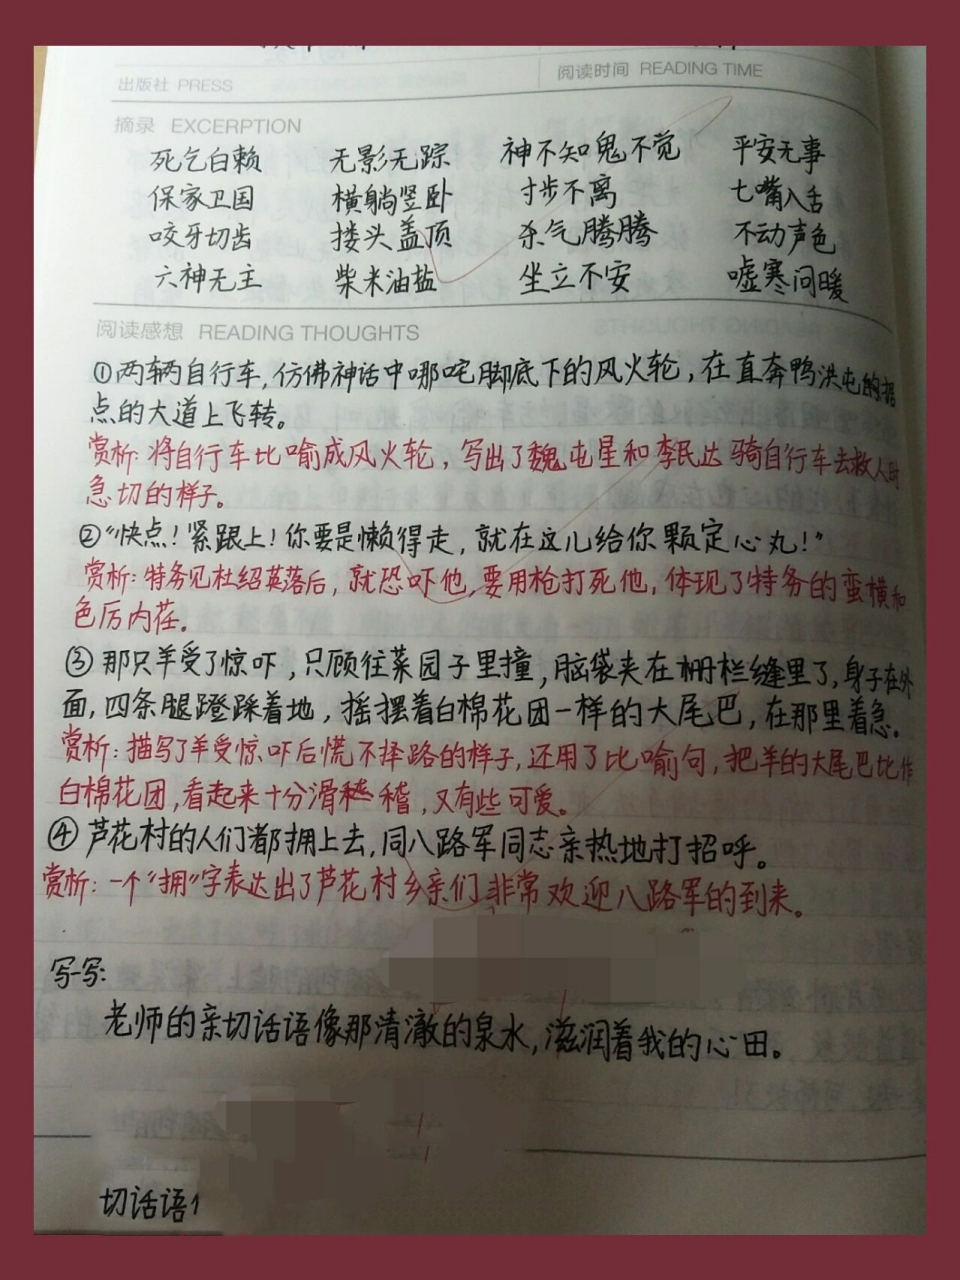 出版社 PRESS
阅读时间 READING TIME
摘录 EXCERPTION
死乞白赖 无影无踪 神不知鬼不觉 平安无事
保家卫国 横躺竖卧 寸步不离 七嘴八舌
咬牙切齿 搂头盖顶 杀气腾腾 不动声色
六神无主 柴米油盐 坐立不安 嘘寒问暖
阅读感想 READING THOUGHTS
①两辆自行车,仿佛神话中哪咤脚底下的风火轮,在直奔鸭洪屯的据
点的大道上飞转。
赏析:将自行车比喻成风火轮,写出了魏屯星和李民达骑自行车去救人时
急切的样子。
②“快点!紧跟上!你要是懒得走,就在这儿给你颗定心丸!”
赏析:特务见杜绍英落后,就恐吓他,要用枪打死他,体现了特务的蛮横和
色厉内荏。
③那只羊受了惊吓,只顾往菜园子里撞,脑袋夹在栅栏缝里了,身子在外
面,四条腿蹬踩着地,摇摆着白棉花团一样的大尾巴,在那里着急。
赏析:描写了羊受惊吓后慌不择路的样子,还用了比喻句,把羊的大尾巴比作
白棉花团,看起来十分滑稽,又有些可爱。
④芦花村的人们都拥上去,同八路军同志亲热地打招呼。
赏析:一个“拥”字表达出了芦花村乡亲们非常欢迎八路军的到来。
写一写:
老师的亲切话语像那清澈的泉水,滋润着我的心田。
切话语1